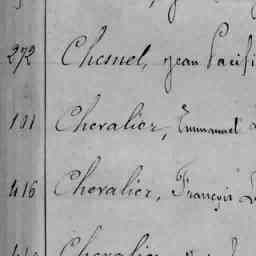 272 Chesnel, Jean Pacifi
101 Chevalier, Emmanuel
416 Chevalier, François
Chevalier